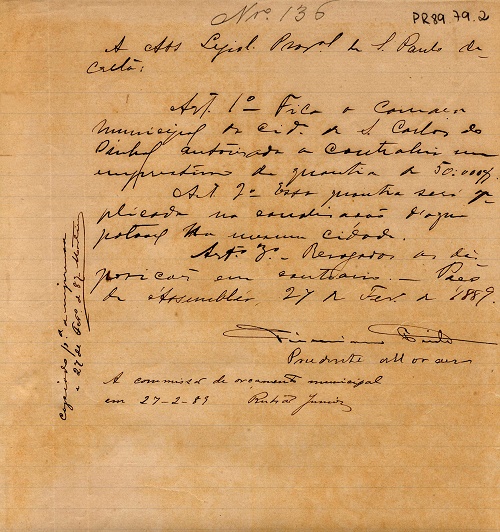 Nro. 136
PR89.79.2
A Ass Legisl. Proval de S. Paulo de-
creta:
Art. 1º Fica a Camara
Municipal da cid. de S. Carlos do
Pinhal autorisada a contrahir um
emprestimo da quantia de 50:000$.
Art 2º Essa quantia será ap-
plicada na canalisação d'agua
potavel na mesma cidade.
Artº 3º - Revogadas as dis-
posições em contrario. - Paço
da Assemblea, 27 de Fev. de 1889
Prudente de Moraes
A commissão de orçamento municipal
em 27-2-89 Rubião Junior
Copiado pª a imprensa
a 27 de Fevº de 89